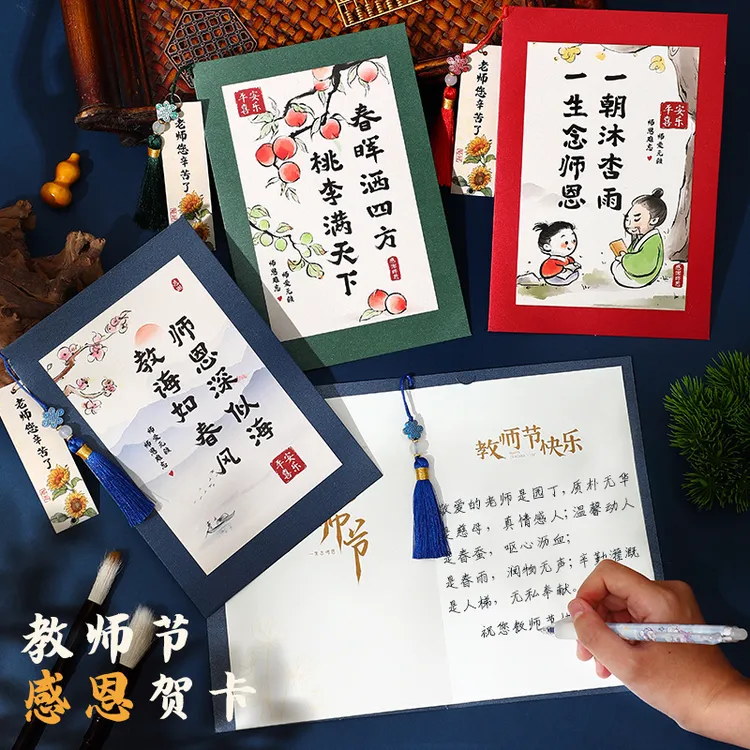 老师您辛苦了
平安喜乐
春晖洒四方
桃李满天下
师爱无限
师恩难忘
老师您辛苦了
一朝沐杏雨
一生念师恩
平安喜乐
师爱无限
师恩难忘
老师您辛苦了
师恩深似海
教诲如春风
师爱无限
师恩难忘
平安喜乐
师节
教师节快乐
敬爱的老师是园丁，质朴无华
是慈母，真情感人；温馨动人
是春蚕，呕心沥血；
是春雨，润物无声；辛勤灌溉
是人梯，无私奉献。
祝您教师节
教师节
感恩贺卡